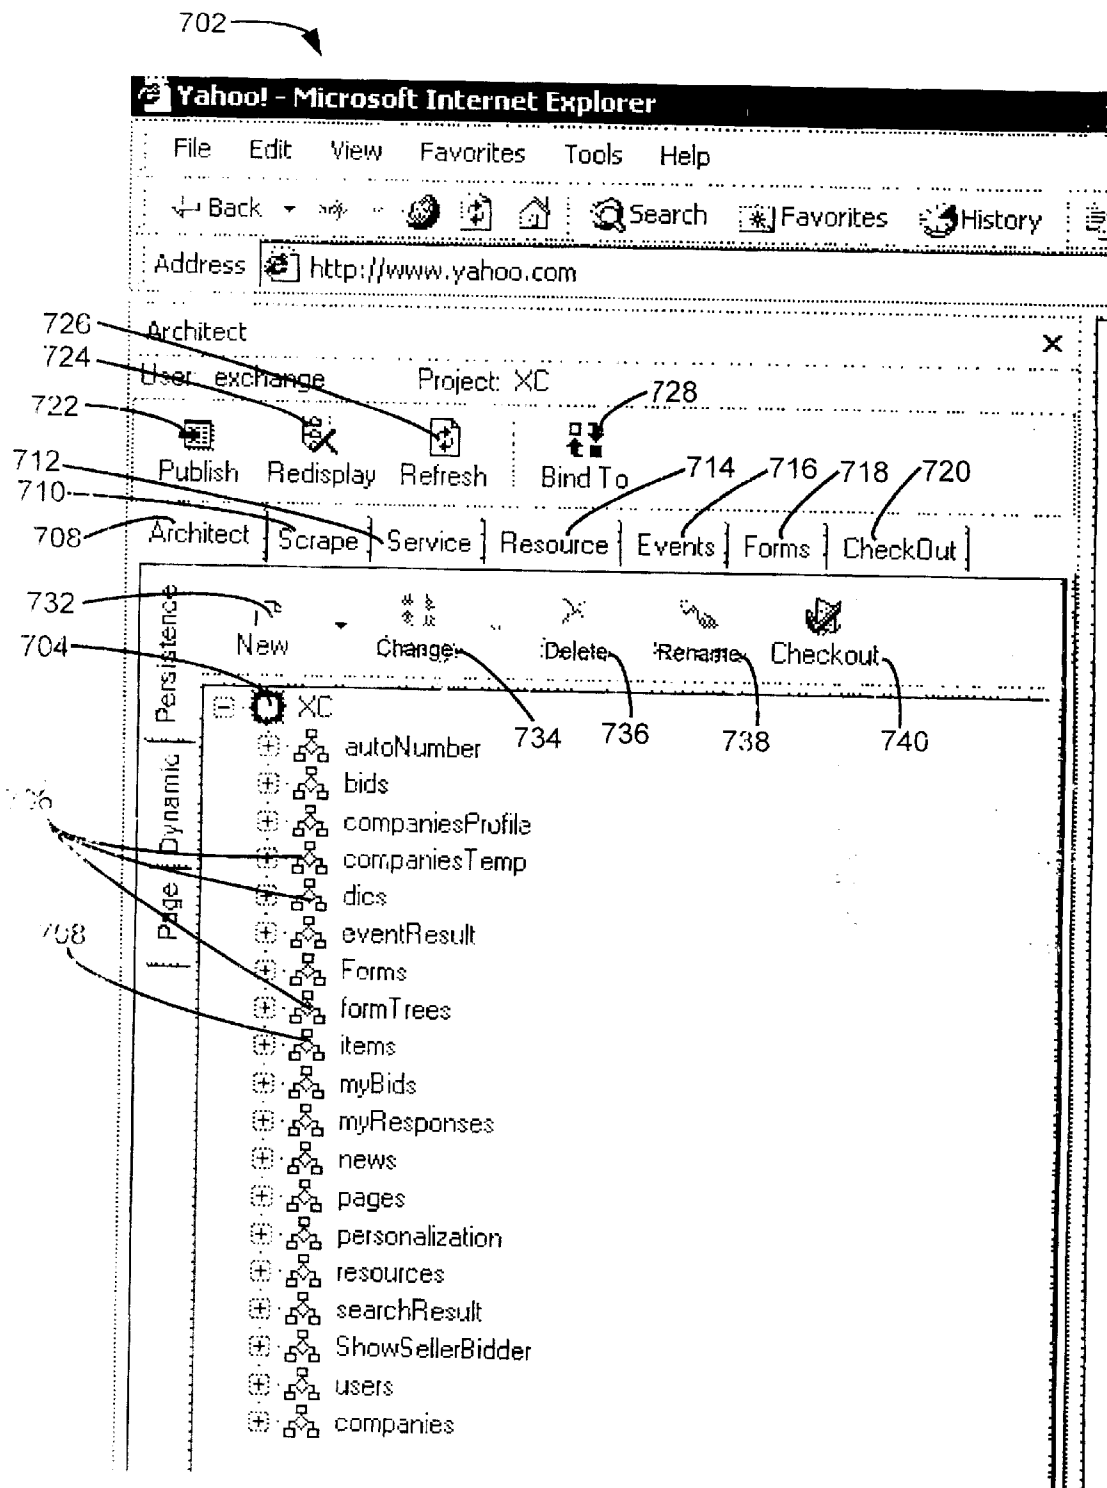 702
Yahoo! - Microsoft Internet Explorer
File Edit View Favorites Tools Help
Back Search Favorites History
Address http://www.yahoo.com
726
Architect
724
User: exchange Project: XC
722
728
Publish Redisplay Refresh Bind To
712
710
714 716 718 720
708
Architect Scrape Service Resource Events Forms CheckOut
Persistence
Dynamic
Page
732
New Change Delete Rename Checkout
704
XC
734 736 738 740
autoNumber
bids
companiesProfile
companiesTemp
dics
708
eventResult
Forms
formTrees
items
myBids
myResponses
news
pages
personalization
resources
searchResult
ShowSellerBidder
users
companies